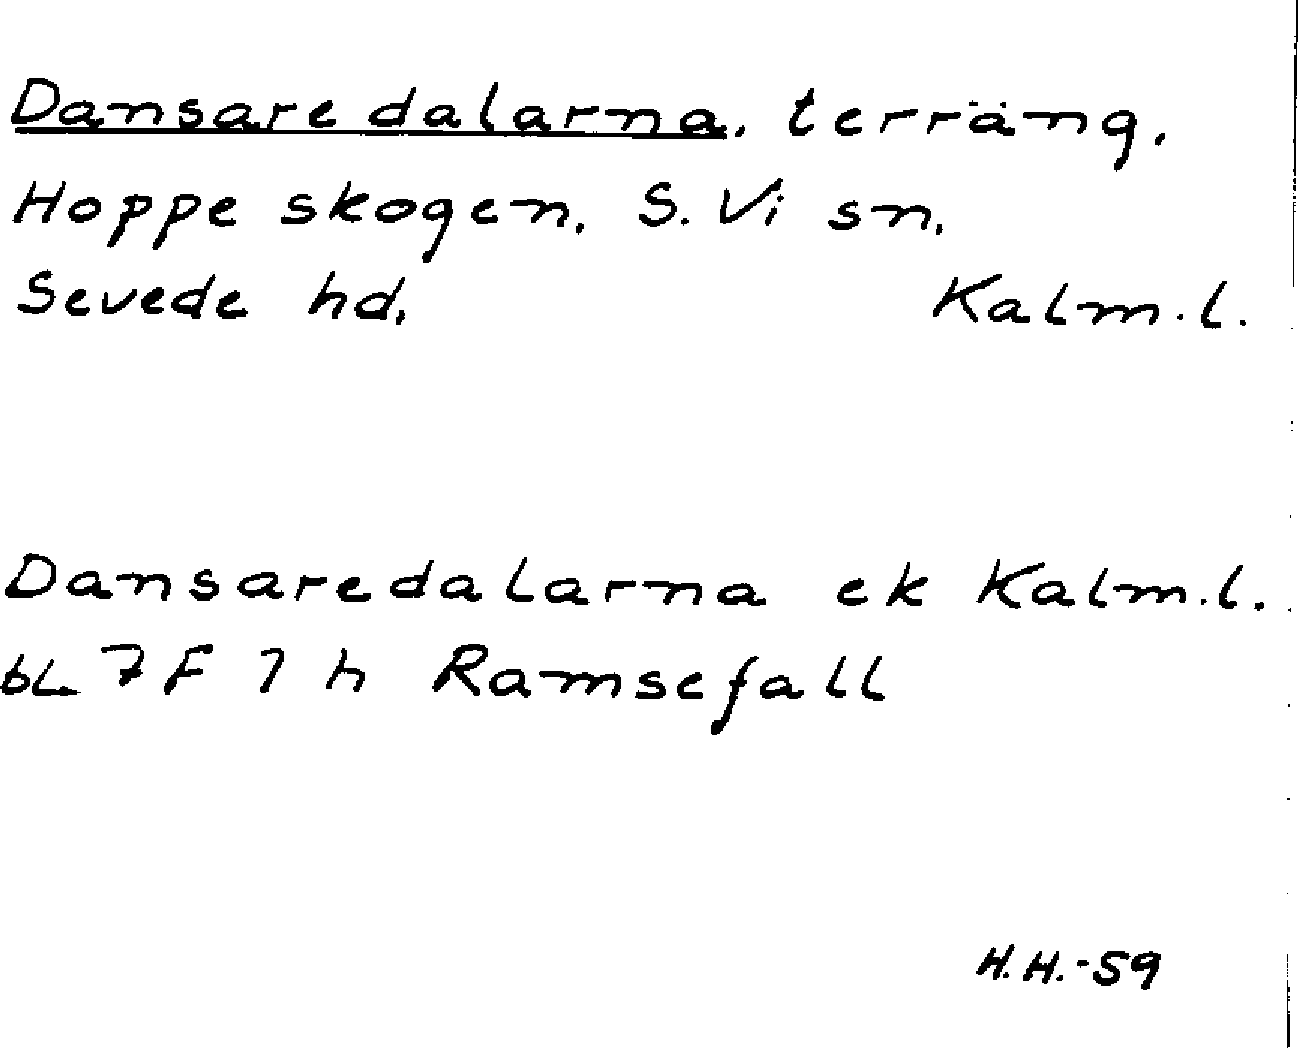 Dansaredalarna, terräng.
Hoppe skogen, S. Vi sn,
Sevede hd, Kalm.l.
Dansaredalarna ek Kalm.l.
bl. 7 F 7 h Ramsefall
H.H.-59